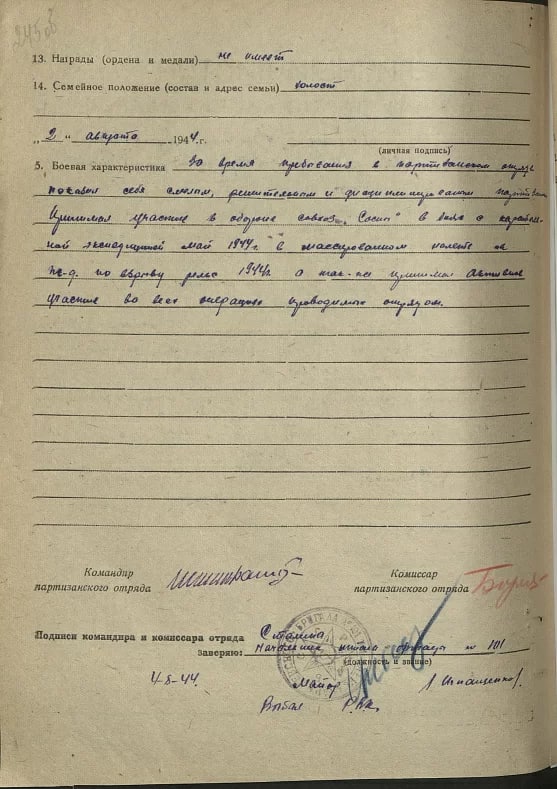 13. Награды (ордена и медали) не имеет
14. Семейное положение (состав и адрес семьи) холост
„2" августа 1944 г.
(личная подпись)
5. Боевая характеристика За время пребывания в партизанском отряде
показал себя смелым, решительным и дисциплинированным
Принимал участие в обороне совхоз „Сосны" в боях с каратель-
ной экспедицией май 1944 г. в массированном налете на
ж-д. по взрыву рельс 1944 г. а так-же принимал активное
участие во всех операциях проводимых отрядом.
Командир
партизанского отряда
Комиссар
партизанского отряда
Подписи командира и комиссара отряда
заверяю: Начальник штаба бригады № 101
(должность и звание)
4-8-44. Майор